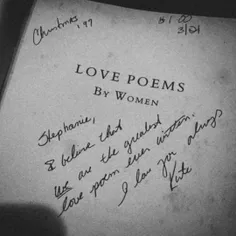 Christmas '97
$1.00
3/21
LOVE POEMS
BY WOMEN
Stephanie,
I believe that
we are the greatest
love poem ever written.
I love you always
Kate